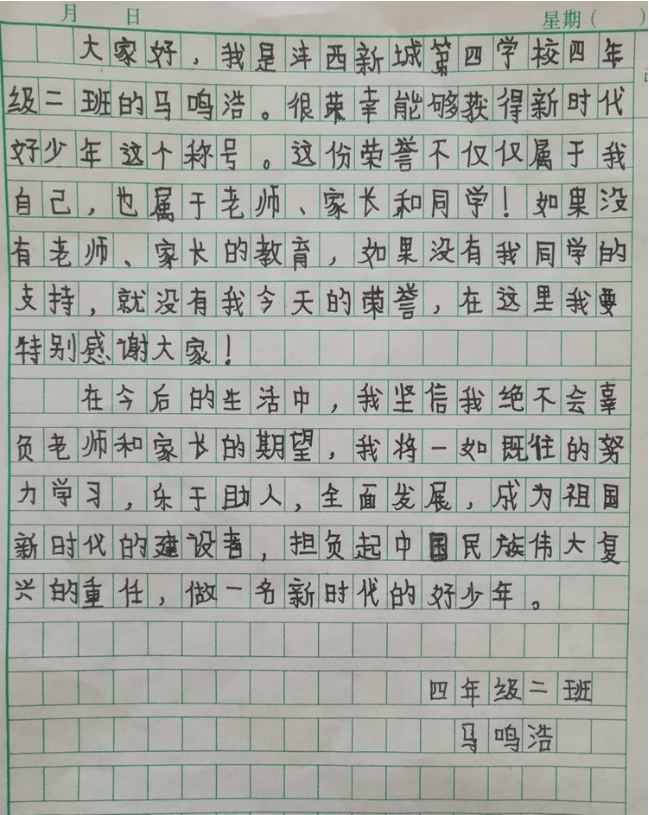 月 日 星期( )
大家好，我是沣西新城第四学校四年
级二班的马鸣浩。很荣幸能够获得新时代
好少年这个称号。这份荣誉不仅仅属于我
自己，也属于老师、家长和同学！如果没
有老师、家长的教育，如果没有我同学的
支持，就没有我今天的荣誉，在这里我要
特别感谢大家！
在今后的生活中，我坚信我绝不会辜
负老师和家长的期望，我将一如既往的努
力学习，乐于助人，全面发展，成为祖国
新时代的建设者，担负起中国民族伟大复
兴的重任，做一名新时代的好少年。
四年级二班
马鸣浩